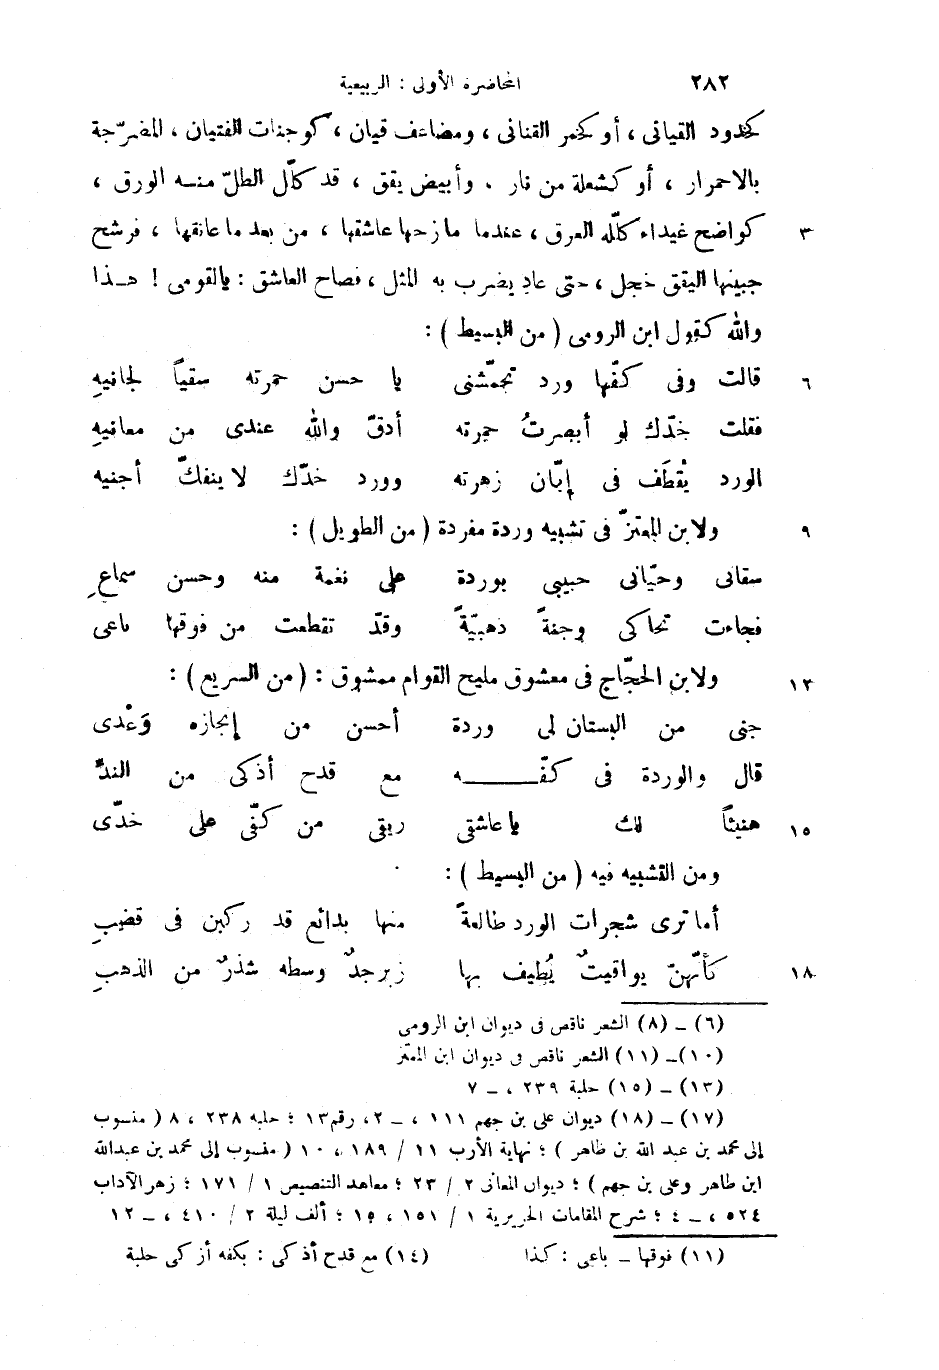 ٢٨٢ المحاضرة الأولى : الربيعية
كخدود القيانى ، أو كخمر القنانى ، ومضاعف قيان ، كوجنات الفتيان ، المضرّجة
بالاحمرار ، أو كشعلة من نار . وأبيض يقق ، قد كلّل الطلّ منـه الورق ،
٣ كواضح غيداء كلّله العرق ، عندما مازحها عاشقها ، من بعد ما عانقها ، فرشح
جبينها اليقق خجل ، حتى عاد يضرب به المثل ، فصاح العاشق : يالقومى ! هـذا
والله كقول ابن الرومى ( من البسيط ) :
٦ قالت وفى كفّها ورد تجمّشنى يا حسن حمرته سقياً لجانيهِ
فقلت خدّك لو أبصرتُ حمرته أدقّ والله عندى من معانيهِ
الورد يُقْطَف فى إبّان زهرته وورد خدّك لا ينفكّ أجنيه
٩ ولابن المعتزّ فى تشبيه وردة مفردة ( من الطويل ) :
سقانى وحيّانى حبيبى بوردة على نغمة منه وحسن سماعِ
فجاءت تحاكى وجنةً ذهبيّةً وقدّ تقطعت من فوقها باعى
١٢ ولابن الحجّاج فى معشوق مليح القوام ممشوق : ( من السريع ) :
جنى من البستان لى وردة أحسن من إنجازه وَعْدى
قال والوردة فى كفّــــه مع قدح أذكى من الندّ
١٥ هنيئاً لك يا عاشقى ريقى من كفّى على خدّى
ومن التشبيه فيه ( من البسيط ) :
أما ترى شجرات الورد طالعةً منها بدائع قد ركبن فى قضبِ
١٨ كأنّهنّ يواقيتٌ يُطيف بها زبرجدٌ وسطه شذرٌ من الذهبِ
(٦) ــ (٨) الشعر ناقص فى ديوان ابن الرومى
(١٠)ــ (١١) الشعر ناقص فى ديوان ابن المعتز
(١٣) ــ (١٥) حلبة ٢٣٩ ، ــ ٧
(١٧) ــ (١٨) ديوان على بن جهم ١١١ ، ــ ٢، رقم١٣ ؛ حلبه ٢٣٨ ، ٨ ( منسوب
إلى محمد بن عبد الله بن طاهر ) ؛ نهاية الأرب ١١ / ١٨٩ ، ١٠ ( منسوب إلى محمد بن عبدالله
ابن طاهر وعلى بن جهم ) ؛ ديوان المعانى ٢ / ٢٣ ؛ معاهد التنصيص ١ / ١٧١ ؛ زهر الآداب
٥٢٤ ، ــ ٤ ؛ شرح المقامات الحريرية ١ / ١٥١ ، ١٥ ؛ ألف ليلة ٢ / ٤١٠ ، ــ ١٢
(١١) فوقها ــ باعى : كذا (١٤) مع قدح أذكى : بكفه أزكى حلبة